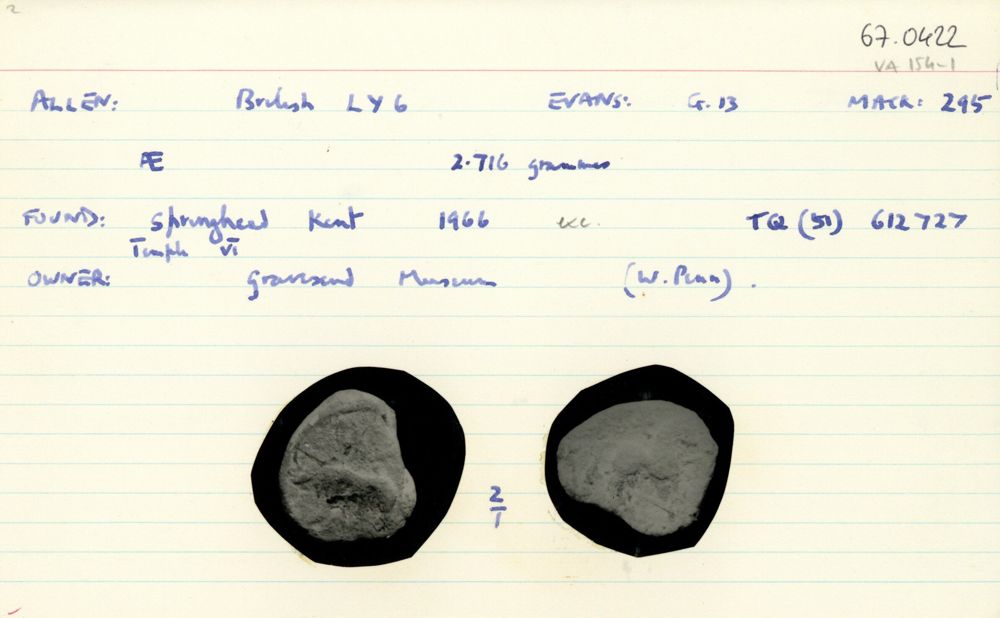 2
67.0422
VA 154-1
ALLEN: British LY 6 EVANS: G.13 MACK: 295
Æ 2.716 grammes
FOUND: Springhead Kent 1966 exc. TQ (51) 612727
Temple VI
OWNER: Gravesend Museum (W. Penn).
2/1